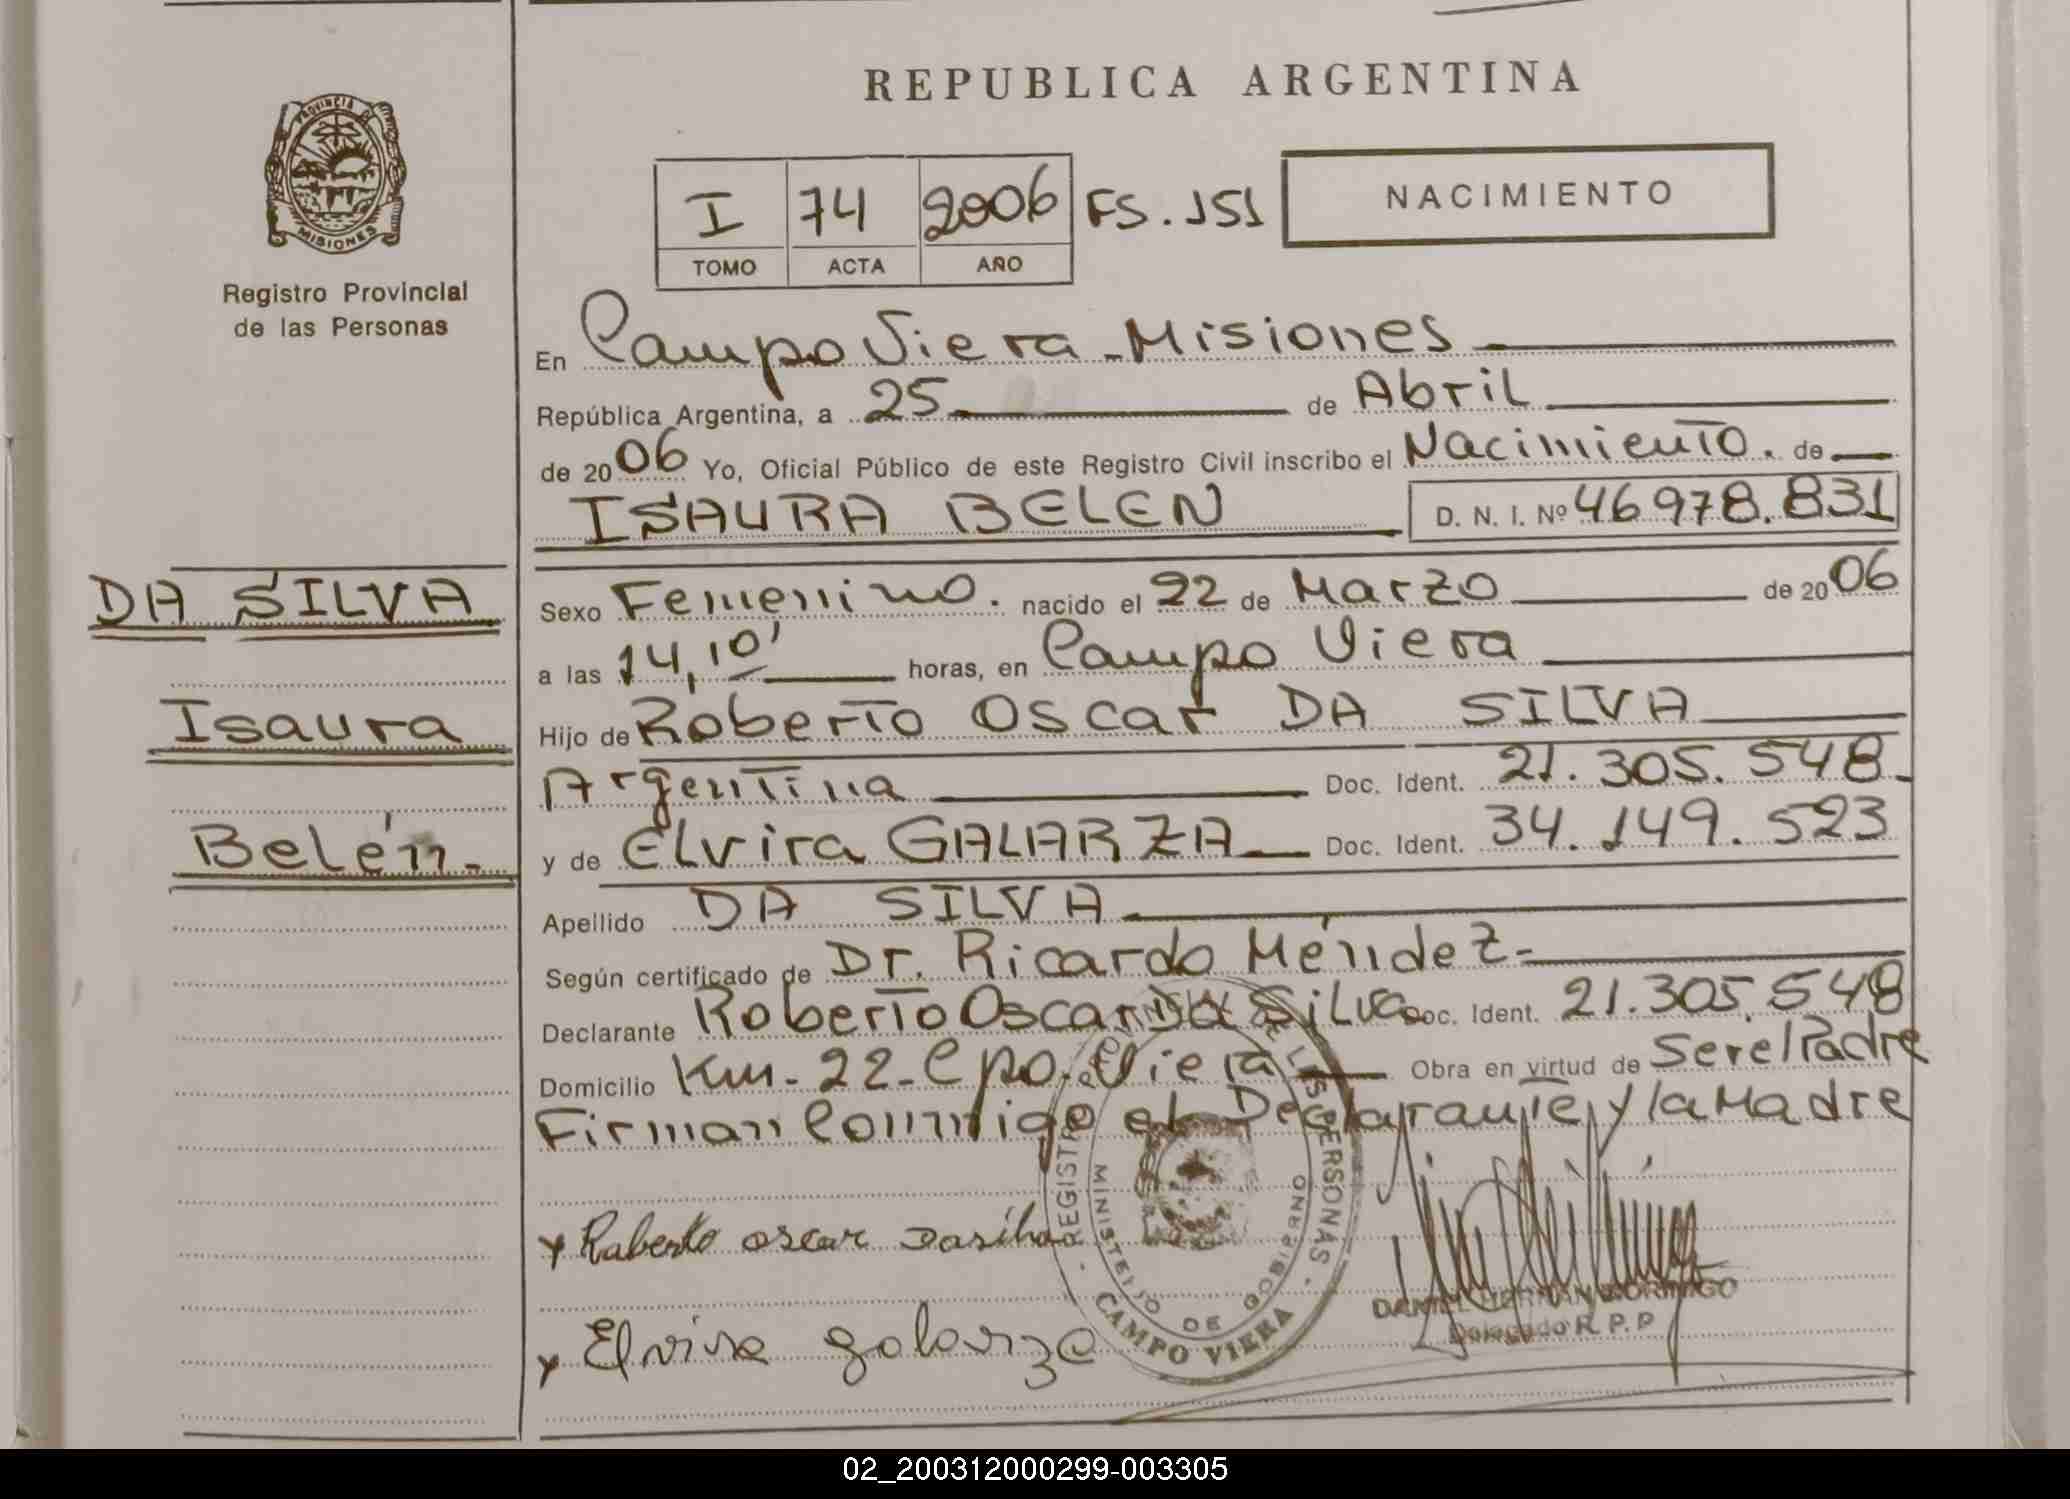 REPUBLICA ARGENTINA
PROVINCIA DE
MISIONES
Registro Provincial
de las Personas
I 74 2006 FS. 151
TOMO ACTA AÑO
NACIMIENTO
En Campo Viera - Misiones
República Argentina, a 25 de Abril
de 2006 Yo, Oficial Público de este Registro Civil inscribo el Nacimiento. de
ISAURA BELEN D. N. I. Nº 46978.831
DA SILVA
Isaura
Belén.-
Sexo Femenino. nacido el 22 de Marzo de 2006
a las 14,10' horas, en Campo Viera
Hijo de Roberto Oscar DA SILVA
Argentina Doc. Ident. 21.305.548.
y de Elvira GALARZA Doc. Ident. 34.149.523
Apellido DA SILVA
Según certificado de Dr. Ricardo Méndez.-
Declarante Roberto Oscar Da Silva Doc. Ident. 21.305.548
Domicilio Km - 22 - Cpo. Viera Obra en virtud de Ser el Padre
Firman Conmigo el Declarante y la Madre
y Roberto oscar Dasilva
y Elvira galarza
REGISTRO DE LAS PERSONAS
MINISTERIO DE GOBIERNO
CAMPO VIERA
DANIEL HERNAN DORNIGO
Delegado R. P. P
02_200312000299-003305